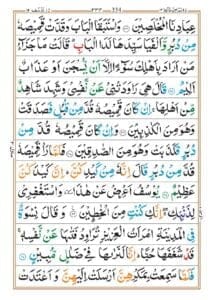 عِبَادِنَا الْمُخْلَصِيْنَ ۝ وَاسْتَبَقَا الْبَابَ وَقَدَّتْ قَمِيْصَهٗ
مِنْ دُبُرٍ وَّاَلْفَيَا سَيِّدَهَا لَدَا الْبَابِ ؕ قَالَتْ مَا جَزَآءُ
مَنْ اَرَادَ بِاَهْلِكَ سُوْٓءًا اِلَّاۤ اَنْ يُّسْجَنَ اَوْ عَذَابٌ
اَلِيْمٌ ۝ قَالَ هِيَ رَاوَدَتْنِيْ عَنْ نَّفْسِيْ وَشَهِدَ شَاهِدٌ
مِّنْ اَهْلِهَا ۚ اِنْ كَانَ قَمِيْصُهٗ قُدَّ مِنْ قُبُلٍ فَصَدَقَتْ
وَهُوَ مِنَ الْكٰذِبِيْنَ ۝ وَاِنْ كَانَ قَمِيْصُهٗ قُدَّ مِنْ دُبُرٍ
فَكَذَبَتْ وَهُوَ مِنَ الصّٰدِقِيْنَ ۝ فَلَمَّا رَاٰ قَمِيْصَهٗ
قُدَّ مِنْ دُبُرٍ قَالَ اِنَّهٗ مِنْ كَيْدِكُنَّ ؕ اِنَّ كَيْدَكُنَّ
عَظِيْمٌ ۝ يُوْسُفُ اَعْرِضْ عَنْ هٰذَا ٚ وَاسْتَغْفِرِيْ
لِذَنْۢبِكِ ۚ اِنَّكِ كُنْتِ مِنَ الْخٰطِـِٕيْنَ ۝ وَقَالَ نِسْوَةٌ
فِي الْمَدِيْنَةِ امْرَاَتُ الْعَزِيْزِ تُرَاوِدُ فَتٰىهَا عَنْ نَّفْسِهٖ ۚ
قَدْ شَغَفَهَا حُبًّا ؕ اِنَّا لَنَرٰىهَا فِيْ ضَلٰلٍ مُّبِيْنٍ ۝
فَلَمَّا سَمِعَتْ بِمَكْرِهِنَّ اَرْسَلَتْ اِلَيْهِنَّ وَاَعْتَدَتْ